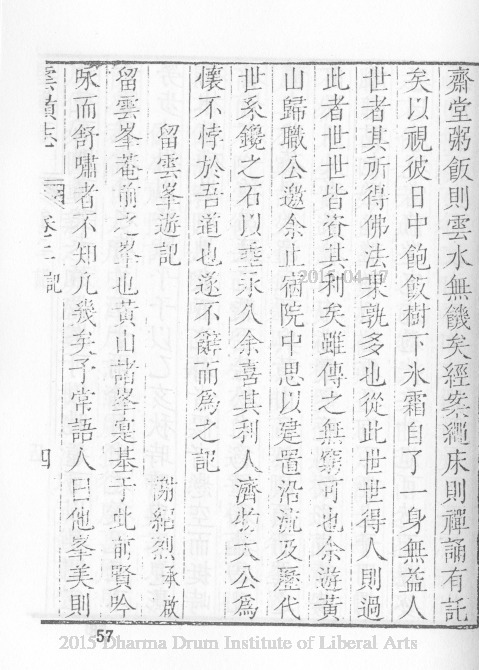 齋堂粥飯則雲水無饑矣經案繩床則禪誦有託
矣以視彼日中飽飯樹下氷霜自了一身無益人
世者其所得佛法果孰多也從此世世得人則過
此者世世皆資其利矣雖傳之無窮可也余遊黃
山歸職公邀余止宿院中思以建置沿流及歷代
世系鑱之石以垂永久余喜其利人濟物大公為
懷不悖於吾道也遂不辭而為之記
留雲峯遊記
謝紹烈承啟
留雲峯菴前之峯也黃山諸峯寔基于此前賢吟
咏而舒嘯者不知凡幾矣予常語人曰他峯美則
黃志
卷之二記
四
2015-04-17
57
2015 Dharma Drum Institute of Liberal Arts